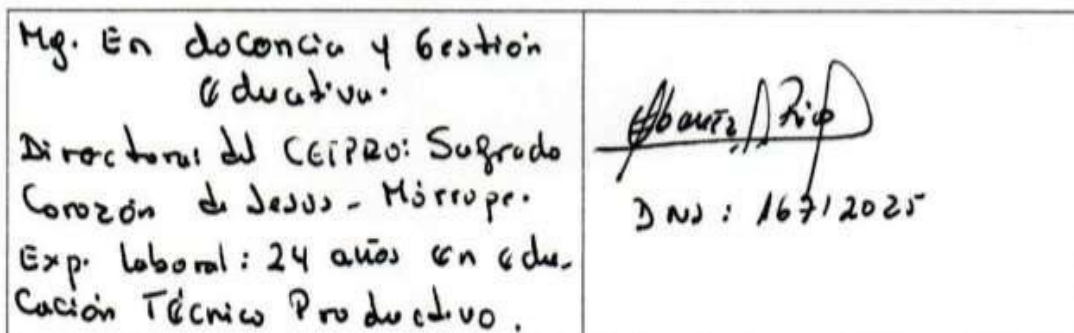 Mg. En docencia y Gestión
educativa.
Directora: del CETPRO: Sagrado
Corazón de Jesús - Mórrope.
Exp. laboral: 24 años en edu-
cación Técnico Productivo.
DNI: 16712025